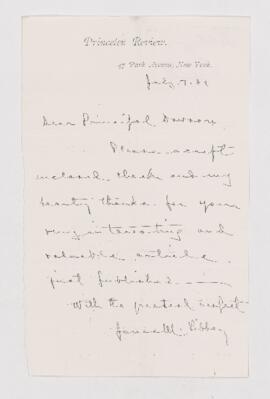 Princeton Review.
47 Park Avenue, New York.
July 7. 81
Dear Principal Dawson,
Please accept
enclosed check and my
hearty thanks for your
very interesting and
valuable article
just published. ———
With the greatest respect
Jonas M. Libbey